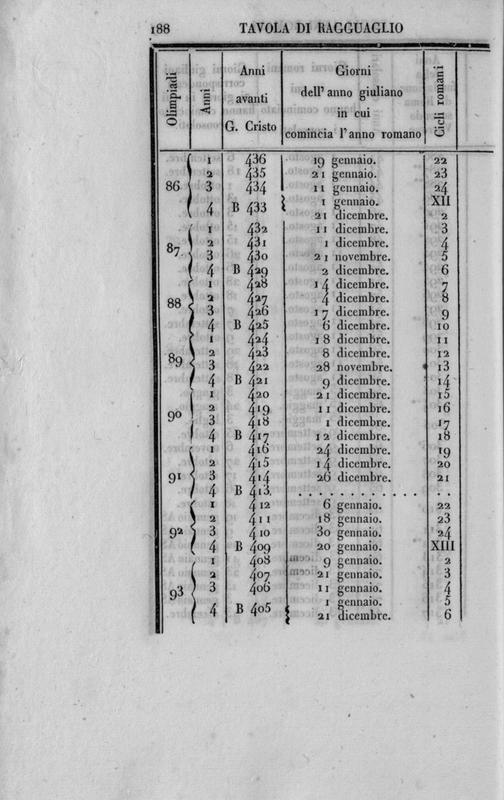 188 TAVOLA DI RAGGUAGLIO
Olimpiadi Anni Anni avanti G. Cristo Giorni dell' anno giuliano in cui comincia l'anno romano Cicli romani
86 1 436 19 gennaio. 22
2 435 21 gennaio. 23
3 434 11 gennaio. 24
4 B 433 1 gennaio. XII
21 dicembre. 2
87 1 432 11 dicembre. 3
2 431 1 dicembre. 4
3 430 21 novembre. 5
4 B 429 2 dicembre. 6
88 1 428 14 dicembre. 7
2 427 4 dicembre. 8
3 426 17 dicembre. 9
4 B 425 6 dicembre. 10
89 1 424 18 dicembre. 11
2 423 8 dicembre. 12
3 422 28 novembre. 13
4 B 421 9 dicembre. 14
90 1 420 21 dicembre. 15
2 419 11 dicembre. 16
3 418 1 dicembre. 17
4 B 417 12 dicembre. 18
91 1 416 24 dicembre. 19
2 415 14 dicembre. 20
3 414 26 dicembre. 21
4 B 413. . . . . . . . . . . . . .
92 1 412 6 gennaio. 22
2 411 18 gennaio. 23
3 410 30 gennaio. 24
4 B 409 20 gennaio. XIII
93 1 408 9 gennaio. 2
2 407 21 gennaio. 3
3 406 11 gennaio. 4
4 B 405 1 gennaio. 5
21 dicembre. 6